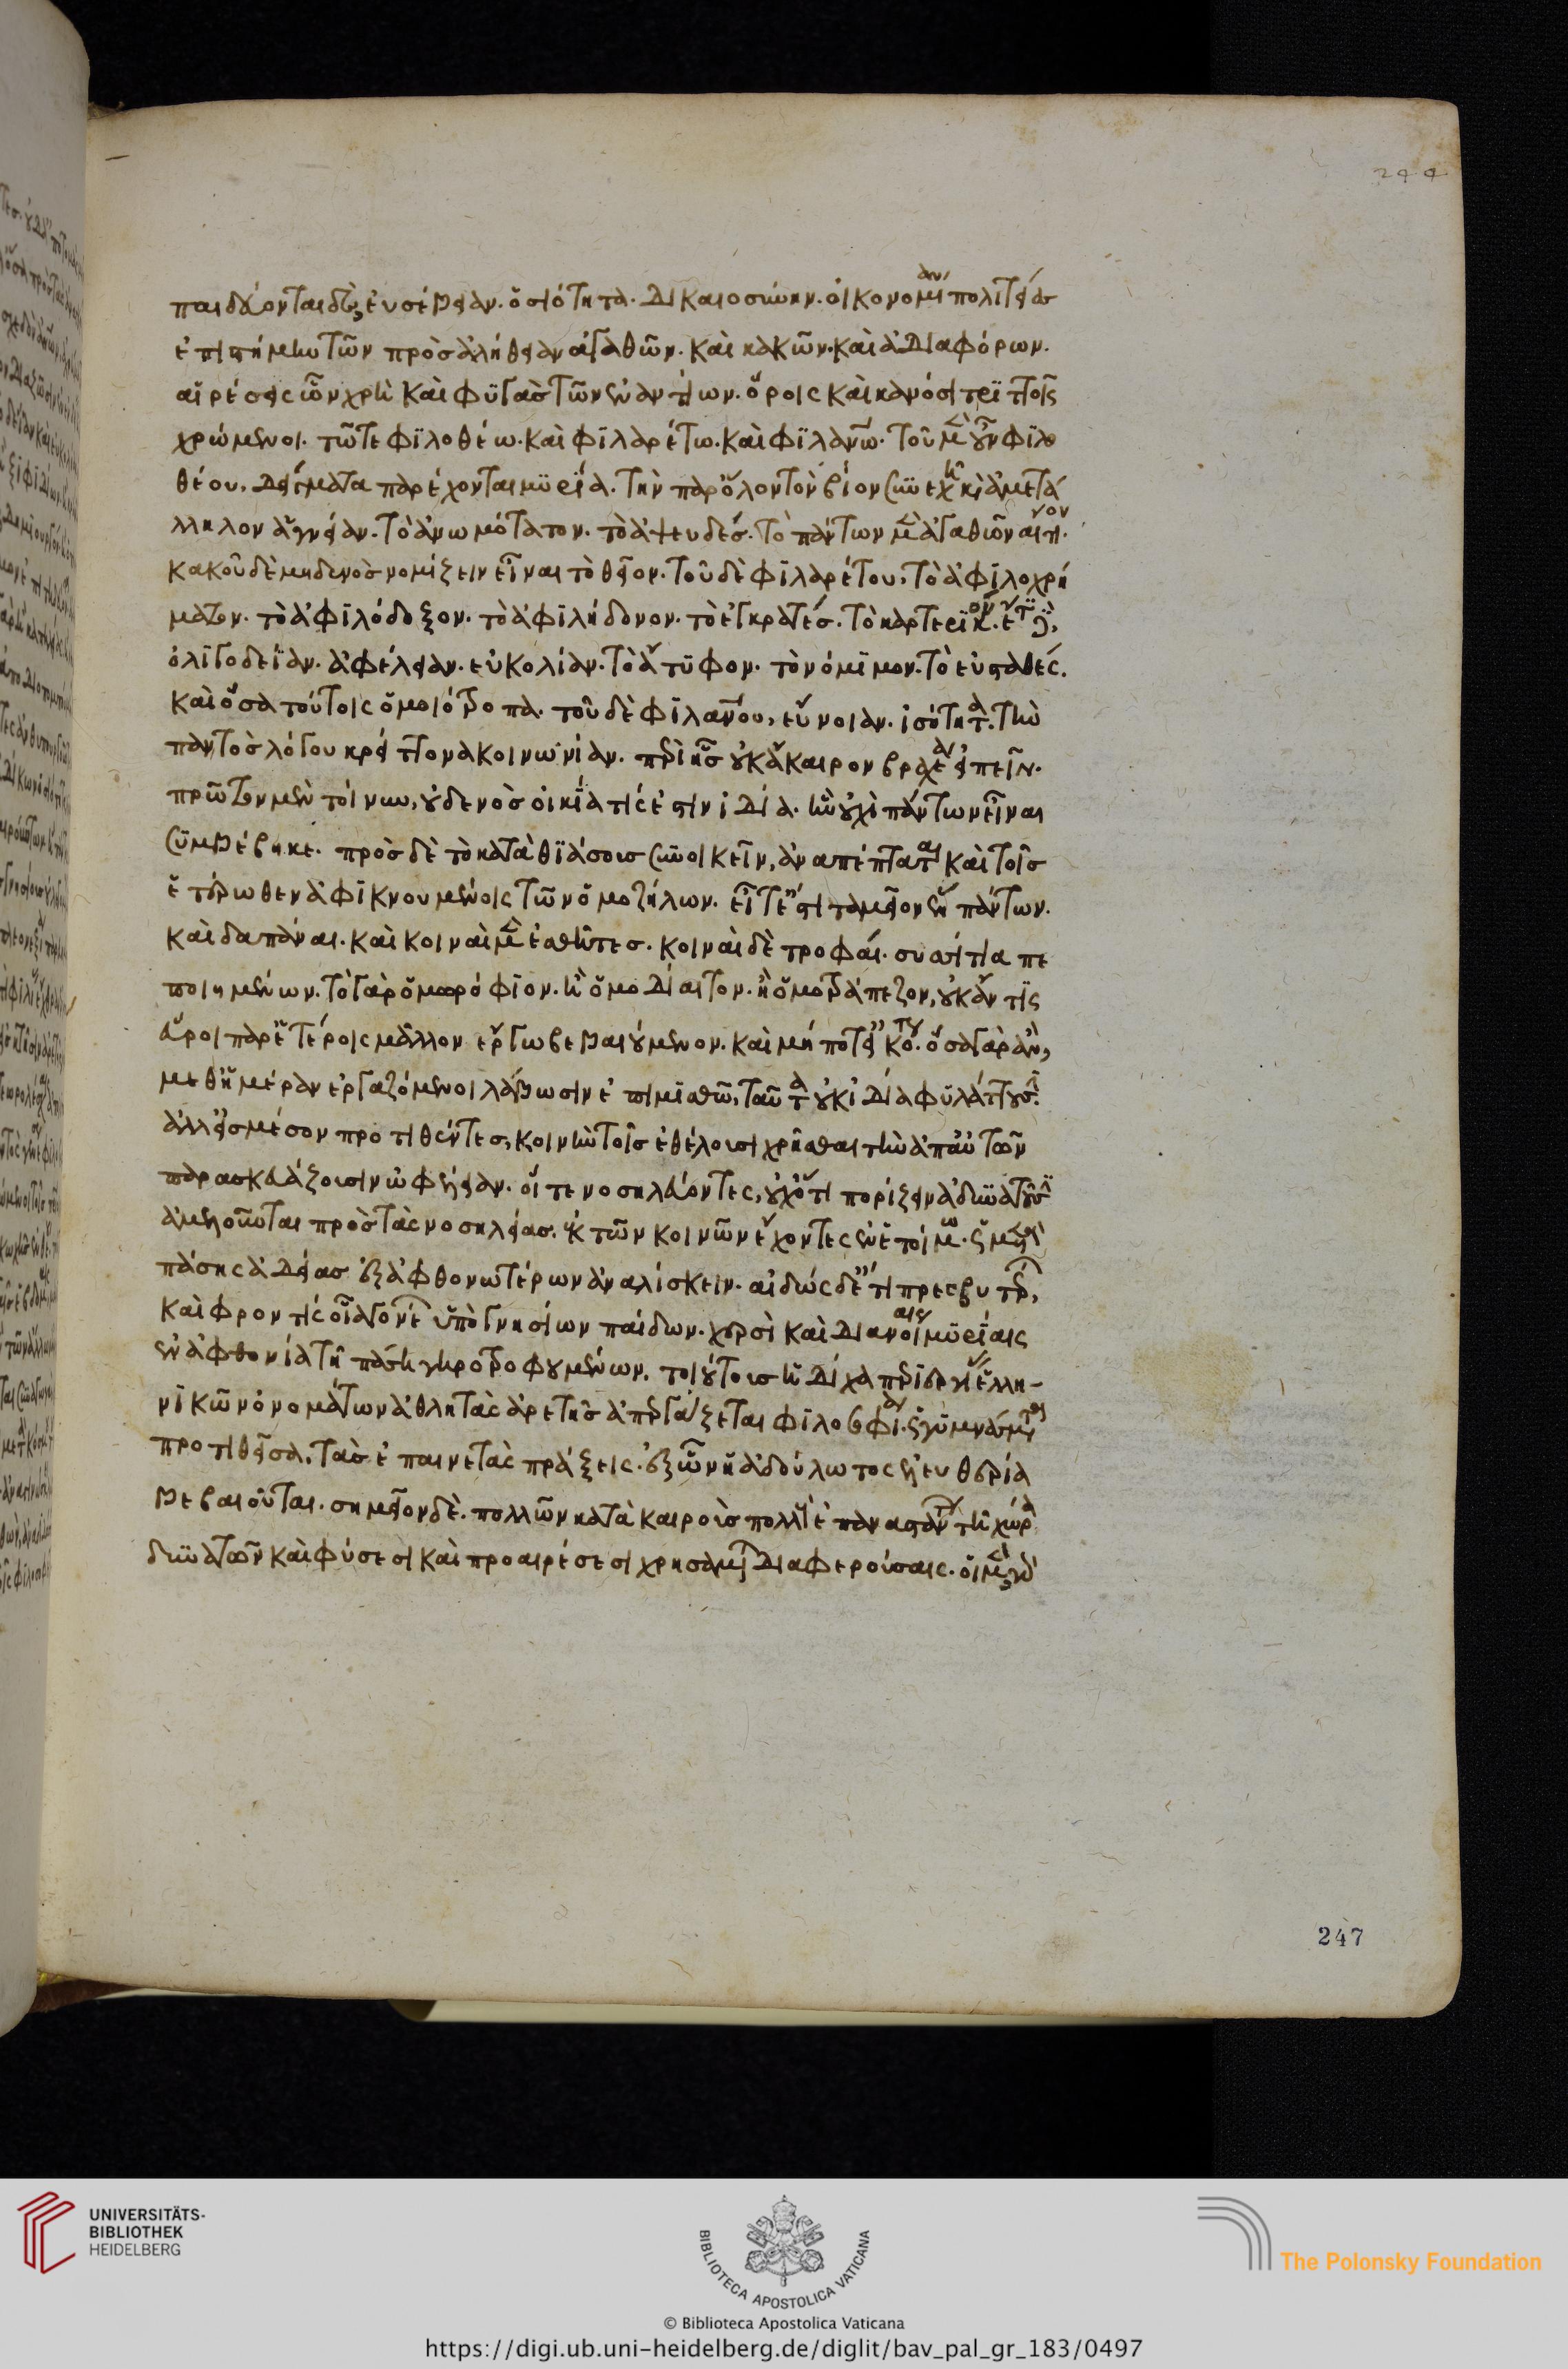 παιδεύονται δὲ, εὐσέβειαν. ὁσιότητα. δικαιοσύνην. οἰκονομίαν πολιτείαν
ἐπιστήμην τῶν πρὸς ἀλήθειαν ἀγαθῶν. καὶ κακῶν. καὶ ἀδιαφόρων.
αἱρέσεις ὧν χρὴ καὶ φϋγὰς τῶν ἐναντίων. ὅροις καὶ κανόσι τρϊττοῖς
χρώμενοι. τῶ τε φϊλοθέω. καὶ φϊλαρέτω. καὶ φϊλανω. τοῦ μὲν οὖν φϊλο
θέου, δείγματα παρέχονται μϋρΐα. τὴν παρ ὅλον τὸν βίον συνεχῆ καὶ ἀμετά
λληλον ἁγνείαν. τὸ ἀνωμότατον. τὸ ἀψευδές. τὸ πάντων μὲν ἀγαθῶν αἴτιον.
κακοῦ δὲ μηδενὸς νομίζειν εἶναι τὸ θεῖον. τοῦ δὲ φϊλαρέτου, τὸ ἀφϊλοχρή
ματον. τὸ ἀφϊλόδοξον. τὸ ἀφϊλήδονον. τὸ ἐγκρατές. τὸ καρτερϊκόν. ἔτϊ δὲ,
ὀλϊγοδεΐαν. ἀφέλειαν. εὐκολίαν. τὸ ἄτϋφον. τὸ νόμϊμον. τὸ εὐσταθές.
καὶ ὅσα τούτοις ὁμοιότροπα. τοῦ δὲ φϊλανου, εὔνοιαν. ἰσότητα. τὴν
παντὸς λόγου κρείττονα κοινωνίαν. περὶ ἧς οὐκ ἄκαιρον βραχέα εἰπεῖν.
πρῶτον μὲν τοίνυν, οὐδενὸς οἰκία τίς ἐστιν ἰδία. ἣν οὐχὶ πάντων εἶναι
συμβέβηκε. πρὸς δὲ τὸ κατὰ θϊάσους συνοικεῖν, ἀναπέπταται καὶ τοῖς
ἑτέρωθεν ἀφϊκνουμένοις τῶν ὁμοζήλων. εἶτ ἔστι ταμεῖον ἓν πάντων.
καὶ δαπάναι. καὶ κοιναὶ μὲν ἐσθῆτες. κοιναὶ δὲ τροφαί. συσσίτια πε
ποιημένων. τὸ γὰρ ὁμωρόφϊον. ἢ ὁμοδίαιτον. ἢ ὁμοτράπεζον, οὐκ ἄν τϊς
εὕροι παρ ἑτέροις μᾶλλον ἔργω βεβαιούμενον. καὶ μή ποτ εἰκότως. ὅσα γὰρ ἂν,
μεθ ἡμέραν ἐργαζόμενοι λάβωσιν ἐπὶ μϊσθῶ, ταῦτα οὐκ ἰδία φϋλάττουσϊ.
ἀλλ εἰς μέσον προτιθέντες, κοινὴν τοῖς ἐθέλουσι χρῆσθαι τὴν ἀπ αὐτῶν
παρασκευάζουσιν ὠφέλειαν. οἵ τε νοσηλεύοντες, οὐχ ὅτι πορίζειν ἀδυνατοῦσϊν
ἀμελοῦνται πρὸς τὰς νοσηλείας. ἐκ τῶν κοινῶν ἔχοντες ἐν ἑτοίμω. ὡς μετὰ
πάσης ἀδείας ἐξ ἀφθονωτέρων ἀναλίσκειν. αἰδώς δ ἔστι πρεσβυτέρων,
καὶ φροντίς οἷα γονέων ὑπὸ γνησίων παίδων. χερσὶ καὶ διανοίαις μϋρΐαις
ἐν ἀφθονία τῆ πάση γηροτροφουμένων. τοιούτους ἡ δίχα περιεργείας ἑλλη-
νϊκῶν ὀνομάτων ἀθλητὰς ἀρετῆς ἀπεργάζεται φϊλοσοφία. ὡς γυμνάσματα
προτιθεῖσα, τὰς ἐπαινετὰς πράξεις. ἐξ ὧν ἡ ἀδούλωτος ἐλευθερία
βεβαιοῦται. σημεῖον δὲ. πολλῶν κατὰ καιροὺς πολλῶν ἐπαναστάντων τῆ χώρα
δυναστῶν καὶ φύσεσι καὶ προαιρέσεσι χρησαμένων διαφερούσαις. οἱ μὲν, γὰρ
244
247
UNIVERSITÄTS-
BIBLIOTHEK
HEIDELBERG
BIBLIOTECA APOSTOLICA VATICANA
The Polonsky Foundation
© Biblioteca Apostolica Vaticana
https://digi.ub.uni-heidelberg.de/diglit/bav_pal_gr_183/0497